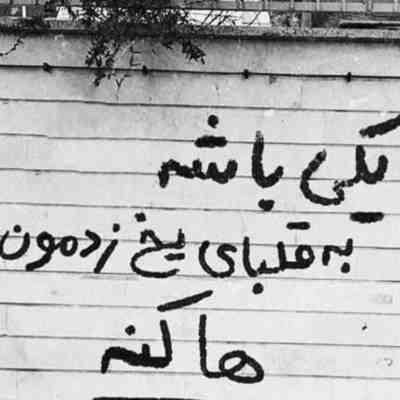 یکی باشه
به قلبای یخ زدمون
ها کنه